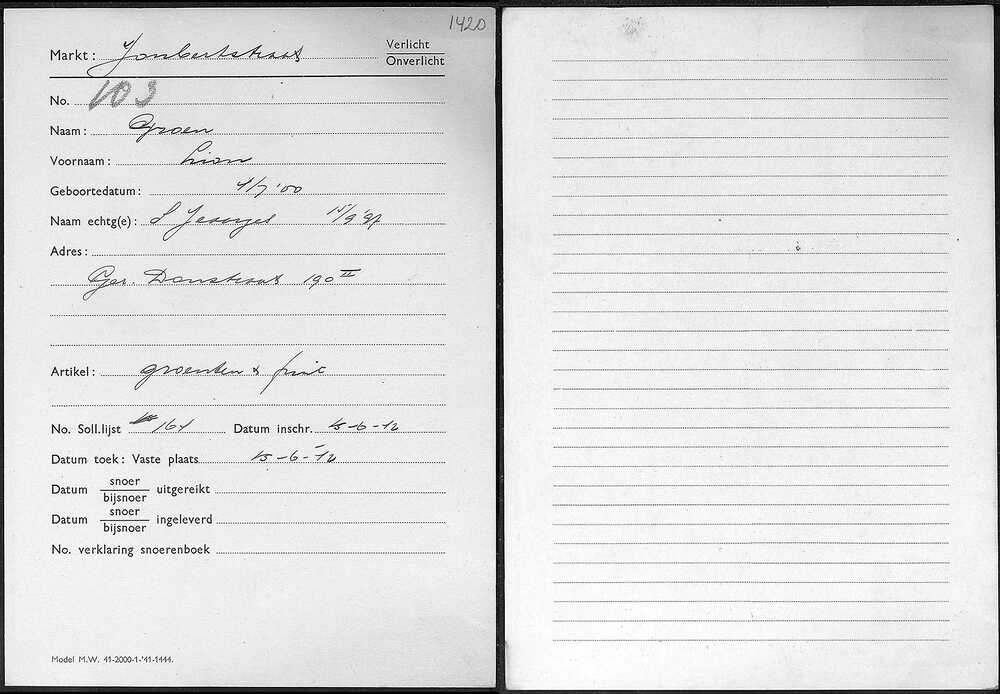 1420
Markt: Joubertstraat Verlicht
Onverlicht
No. 103
Naam: Groen
Voornaam: Lion
Geboortedatum: 4/7 '00
Naam echtg(e): S 15/9 '97
Adres:
Ger. Doustraat 190 II
Artikel: groenten & fruit
No. Soll.lijst 164 Datum inschr. 15-6-42
Datum toek: Vaste plaats 15-6-42
Datum snoer
bijsnoer uitgereikt
Datum snoer
bijsnoer ingeleverd
No. verklaring snoerenboek
Model M.W. 41-2000-1-'41-1444.